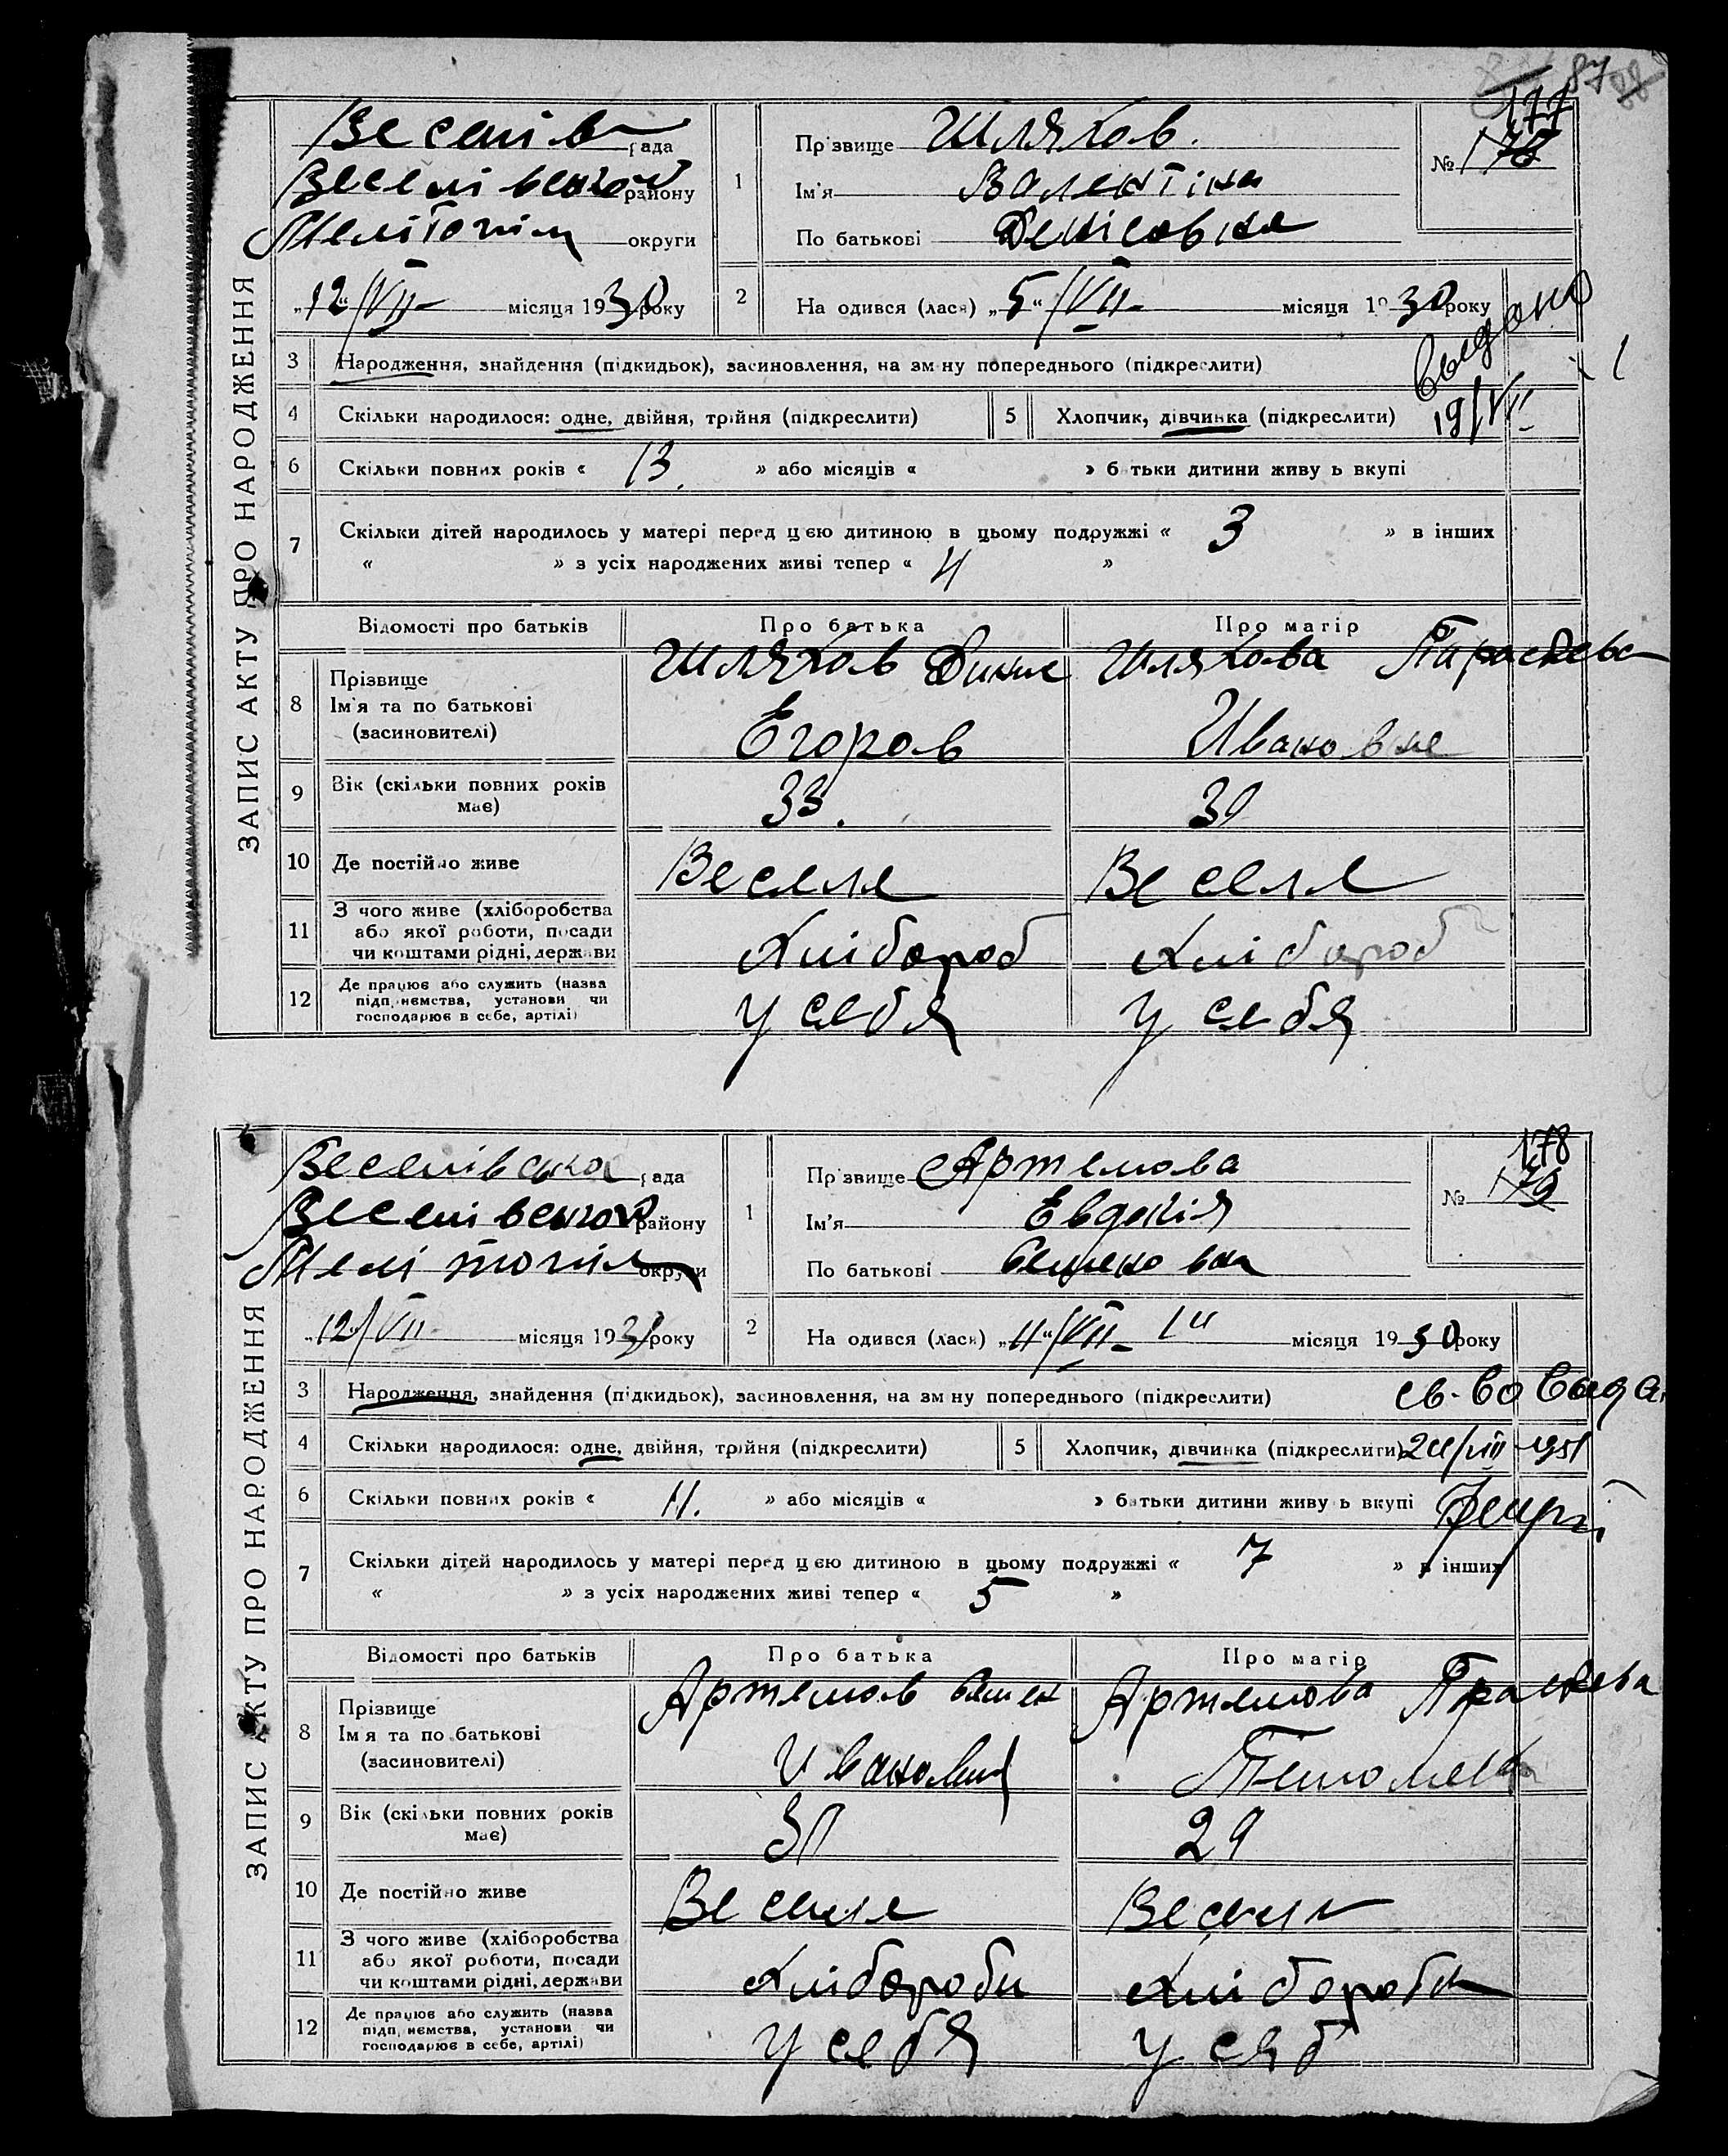 87
177
ЗАПИС АКТУ ПРО НАРОДЖЕННЯ
Веселів рада
Веселівського району
Мелітопіл округи
„12“/VII місяця 1930 року
1
Прізвище Шляхов.
Ім'я Валентіна
По батькові Денісовна
№ 178
2
На одився (лася) „5“/VII місяця 1930 року
Выдано
19/VII
3 Народження, знайдення (підкидьок), засиновлення, на зм ну попереднього (підкреслити)
4 Скільки народилося: одне, двійня, трійня (підкреслити) 5 Хлопчик, дівчинка (підкреслити)
6 Скільки повних років « 13. » або місяців « » батьки дитини живу ь вкупі
7 Скільки дітей народилось у матері перед цією дитиною в цьому подружжі « 3 » в інших
« » з усіх народжених живі тепер « 4 »
Відомості про батьків Про батька Про матір
8 Прізвище
Ім'я та по батькові
(засиновителі)
Шляхов Егоров
Шляхова Параскева Ивановна
9 Вік (скільки повних років має) 33. 39
10 Де постійно живе Веселе Веселе
11 З чого живе (хліборобства
або якої роботи, посади
чи коштами рідні, держави
Хлібороб Хлібороб
12 Де працює або служить (назва
підп иємства, установи чи
господарює в себе, артілі)
у себя у себя
178
ЗАПИС АКТУ ПРО НАРОДЖЕННЯ
Веселівська рада
Веселівського району
Мелітопіл округи
„12“/VII місяця 193 року
1
Прізвище Артемова
Ім'я Евдокія
По батькові Семеновна
№ 179
2
На одився (лася) „11“/VII місяця 1930 року
3 Народження, знайдення (підкидьок), засиновлення, на зм ну попереднього (підкреслити)
св-во выда
4 Скільки народилося: одне, двійня, трійня (підкреслити) 5 Хлопчик, дівчинка (підкреслити)
/VIII 1951
6 Скільки повних років « 11. » або місяців « » батьки дитини живу ь вкупі
7 Скільки дітей народилось у матері перед цією дитиною в цьому подружжі « 7 » в інших
« » з усіх народжених живі тепер « 5 »
Відомості про батьків Про батька Про матір
8 Прізвище
Ім'я та по батькові
(засиновителі)
Артемов Семен Иванович
Артемова Праскева
9 Вік (скільки повних років має) 31 29
10 Де постійно живе Веселе Веселе
11 З чого живе (хліборобства
або якої роботи, посади
чи коштами рідні, держави
Хлібороби Хлібороби
12 Де працює або служить (назва
підп иємства, установи чи
господарює в себе, артілі)
у себя у себ